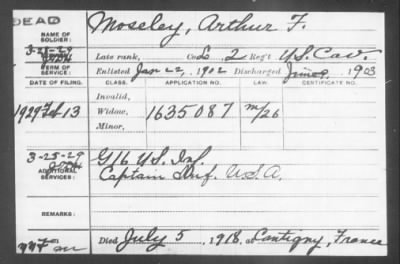 DEAD
Moseley, Arthur F.
NAME OF SOLDIER:
3-25-29
TERM OF SERVICE:
Late rank, Co L 2 Reg't U.S. Cav.
Enlisted Jan 22, 1902 Discharged June 1903
DATE OF FILING. CLASS. APPLICATION NO. LAW. CERTIFICATE NO.
Invalid,
1929 Feb 13 Widow, 1635087 m/26
Minor,
3-25-29
ADDITIONAL SERVICES:
G 16 U.S. Inf.
Captain Inf. U.S.A.
REMARKS:
Died July 5, 1918, at Cantigny, France